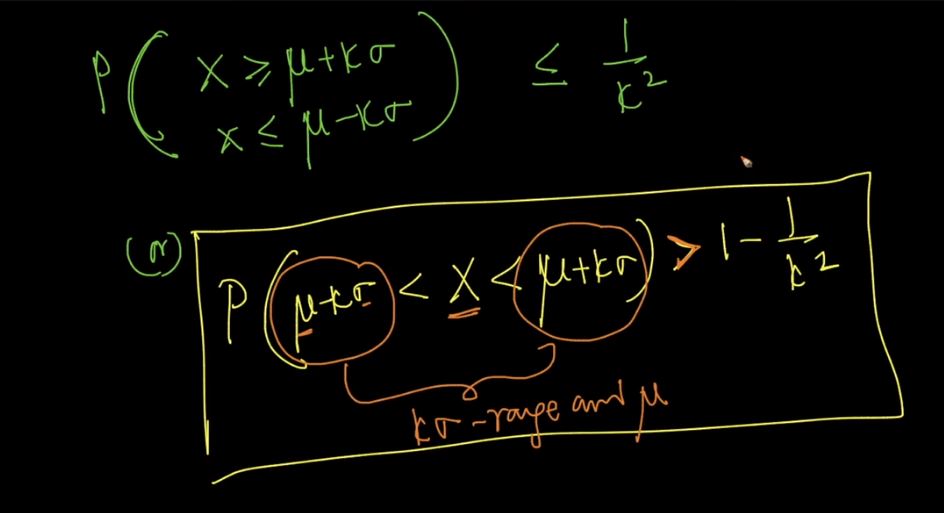 P( X ≥ μ+kσ
x ≤ μ-kσ ) ≤ 1/k²
(or) P( μ-kσ < X < μ+kσ ) > 1 - 1/k²
kσ-range and μ